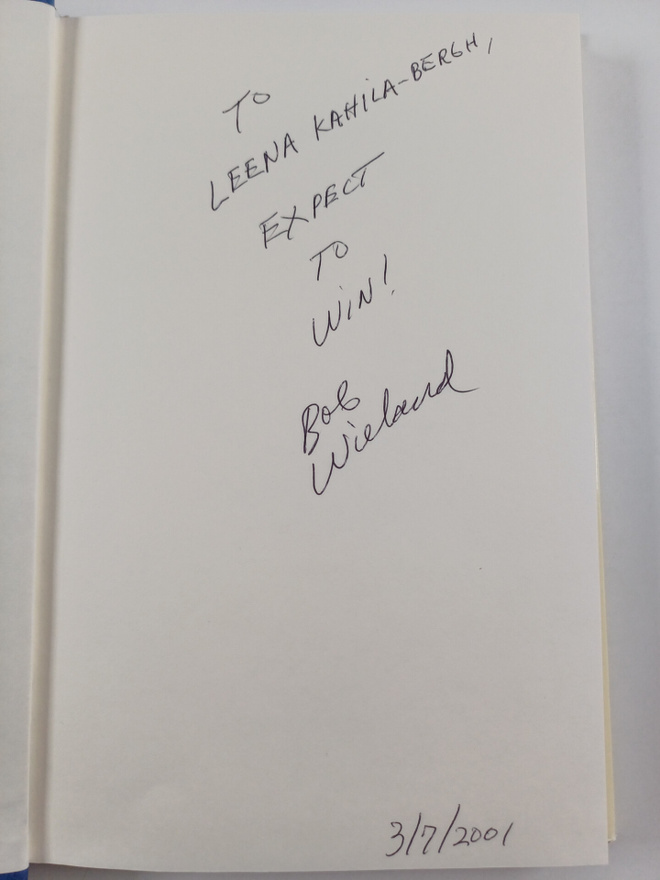 TO
LEENA KAHILA-BERGH,
EXPECT
TO
WIN!
Bob
Wieland
3/7/2001